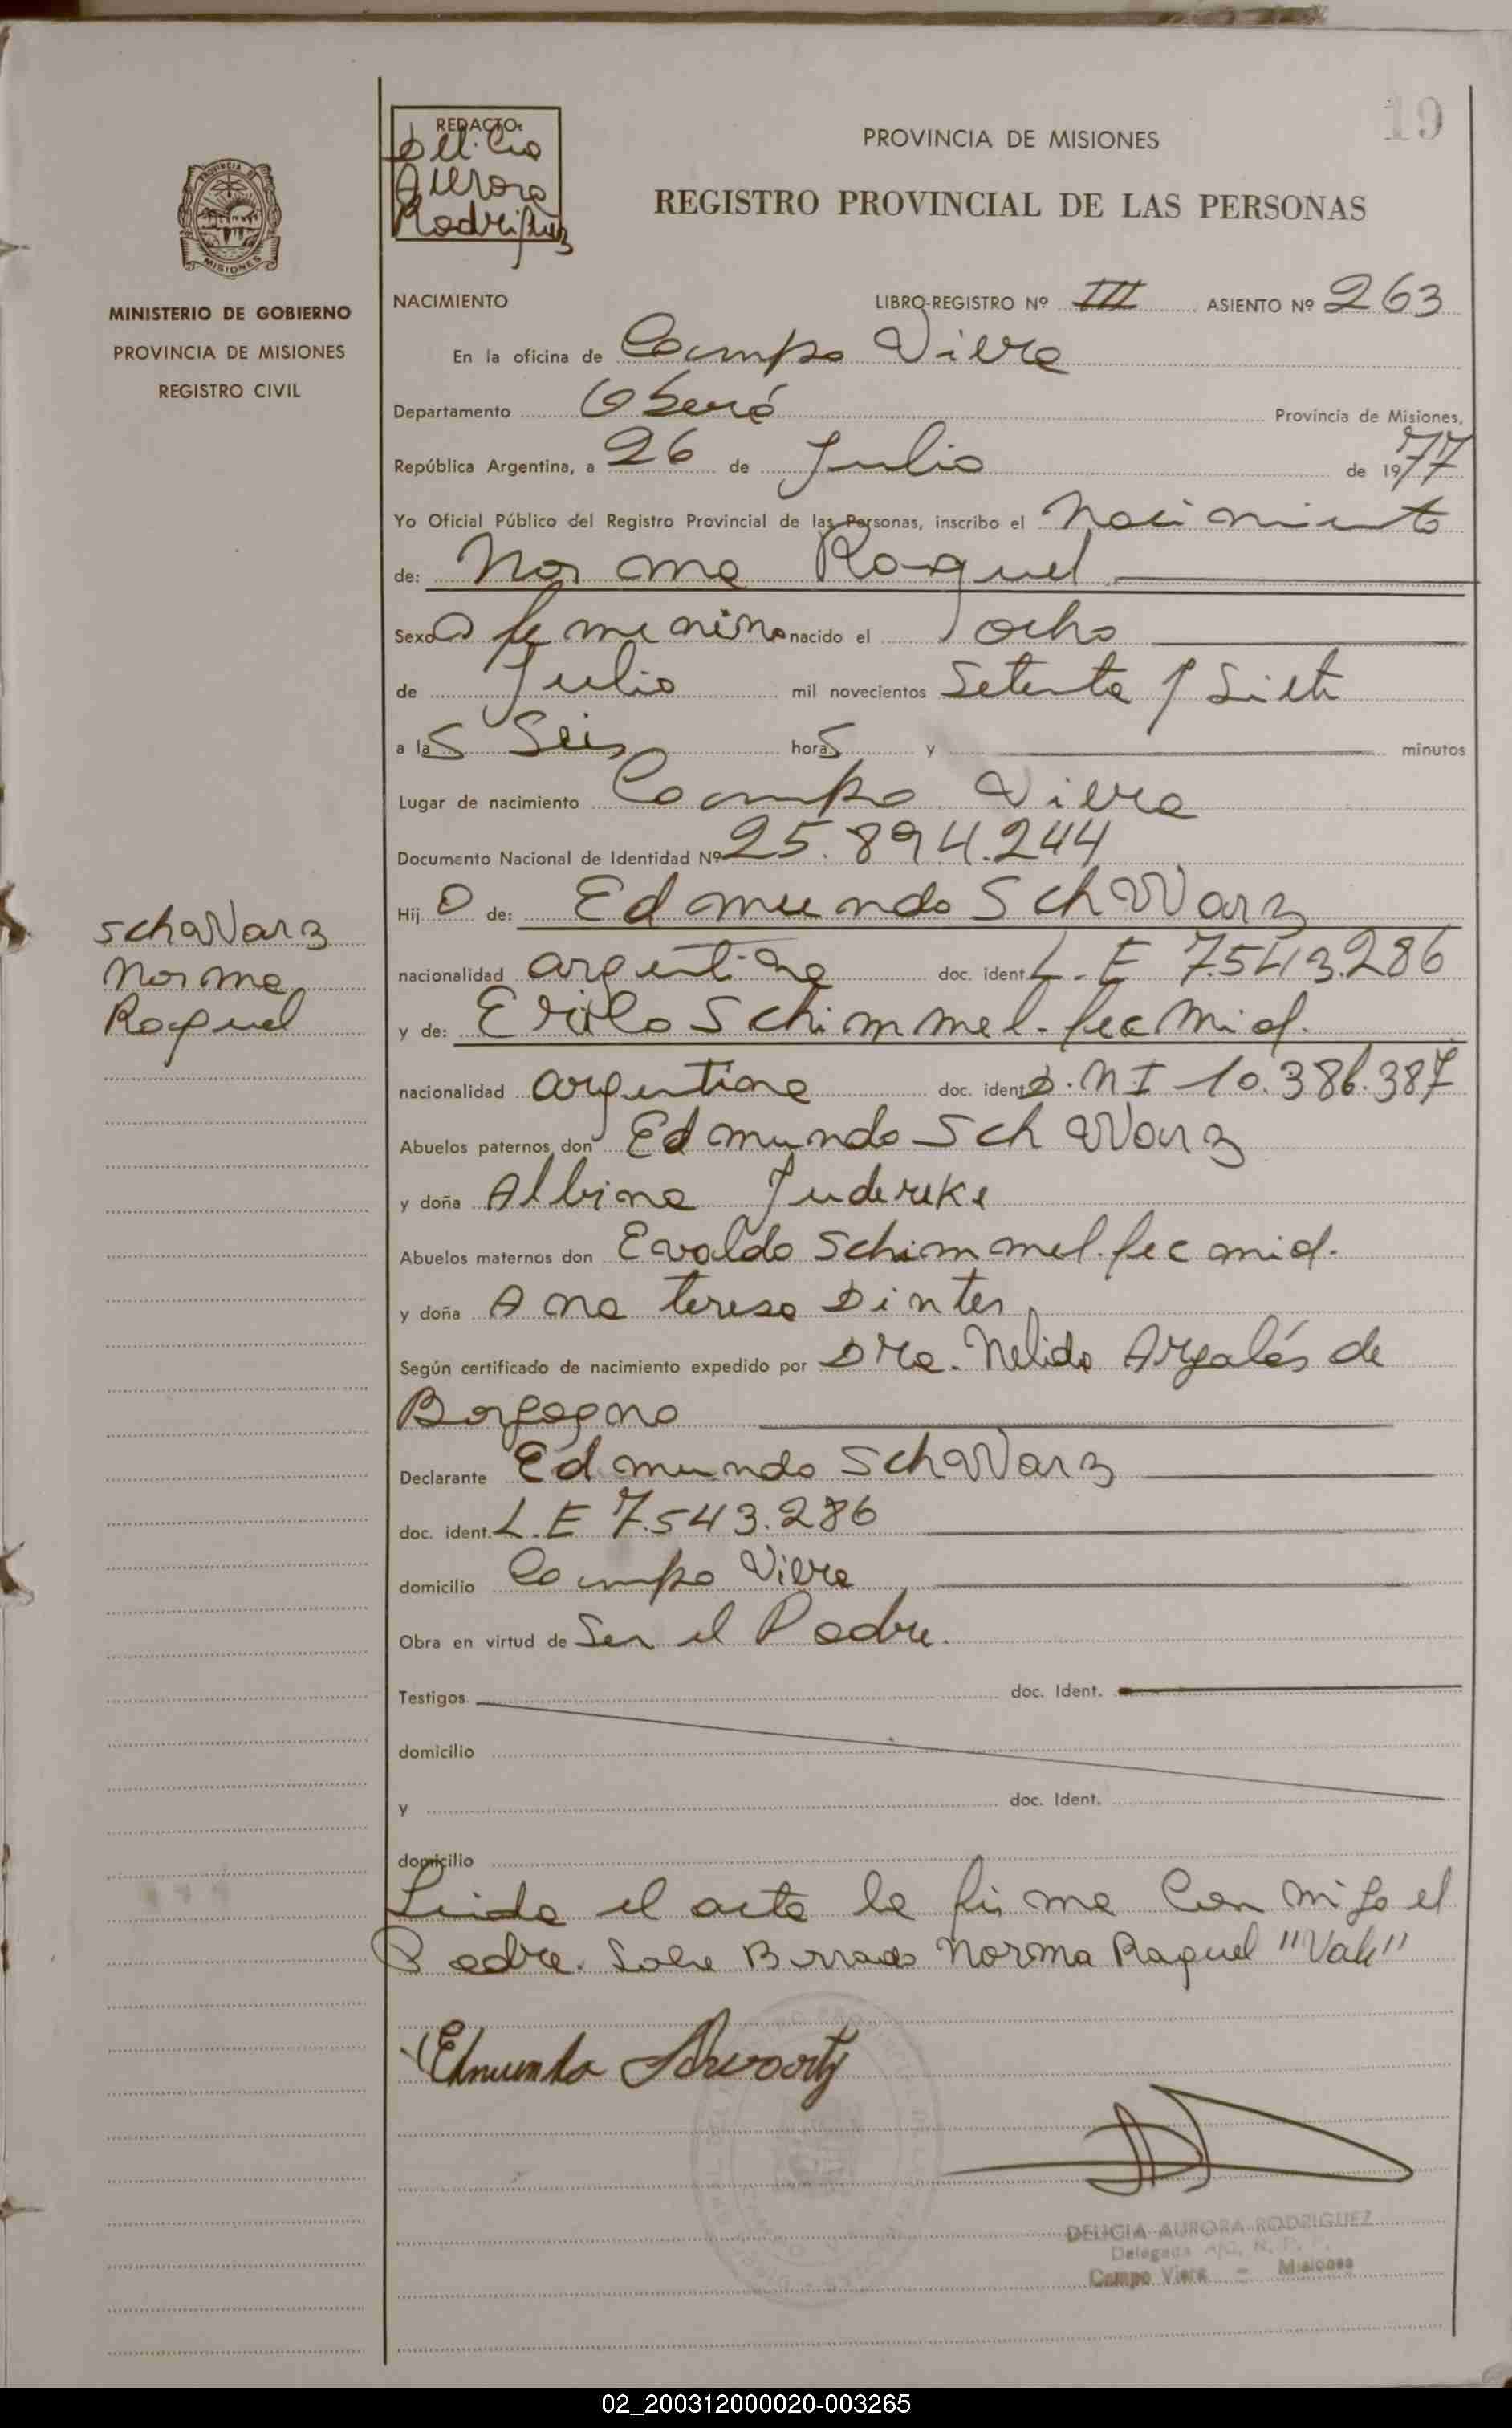 19
REDACTO:
Delicia
Aurora
Rodriguez
PROVINCIA DE MISIONES
REGISTRO PROVINCIAL DE LAS PERSONAS
PROVINCIA DE
MISIONES
MINISTERIO DE GOBIERNO
PROVINCIA DE MISIONES
REGISTRO CIVIL
NACIMIENTO LIBRO-REGISTRO Nº III ASIENTO Nº 263
En la oficina de Campo Viera
Departamento Oberá Provincia de Misiones,
República Argentina, a 26 de Julio de 1977
Yo Oficial Público del Registro Provincial de las Personas, inscribo el Nacimiento
de: Norma Raquel
Sexo femenino nacido el ocho
de Julio mil novecientos Setenta y Siete
a las Seis horas y minutos
Lugar de nacimiento Campo Viera
Documento Nacional de Identidad Nº 25.894.244
Hij o de: Edmundo Schawarz
nacionalidad argentina doc. ident. L.E 7.543.286
y de: Schimmel.fecmid.
nacionalidad argentina doc. ident. D.N I 10.386.387
Abuelos paternos don Edmundo Schawarz
y doña Albina
Abuelos maternos don Evaldo Schimmel.fecmid.
y doña Ana teresa Dinter
Según certificado de nacimiento expedido por Dra. Nelida Argalés de
Borgogno
Declarante Edmundo Schawarz
doc. ident. L.E 7.543.286
domicilio Campo Viera
Obra en virtud de Ser el Padre.
Testigos doc. Ident.
domicilio
y doc. Ident.
domicilio
Leida el acta la firma Con migo el
Padre. Sobre Borrado Norma Raquel "Vale"
Schawarz
Norma
Raquel
Edmundo
DELICIA AURORA RODRIGUEZ
Delegada
Campo Viera - Misiones
02_200312000020-003265